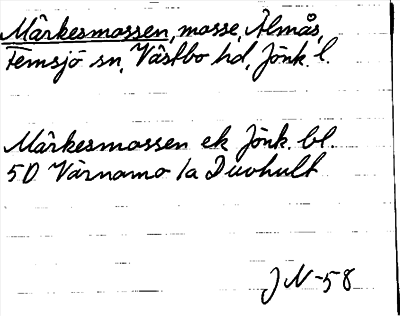 Märkesmossen, mosse, Älmås,
Femsjö sn, Västbo hd, Jönk. l.
Märkesmossen ek Jönk. bl.
5D Värnamo /a Duvhult
JN-58